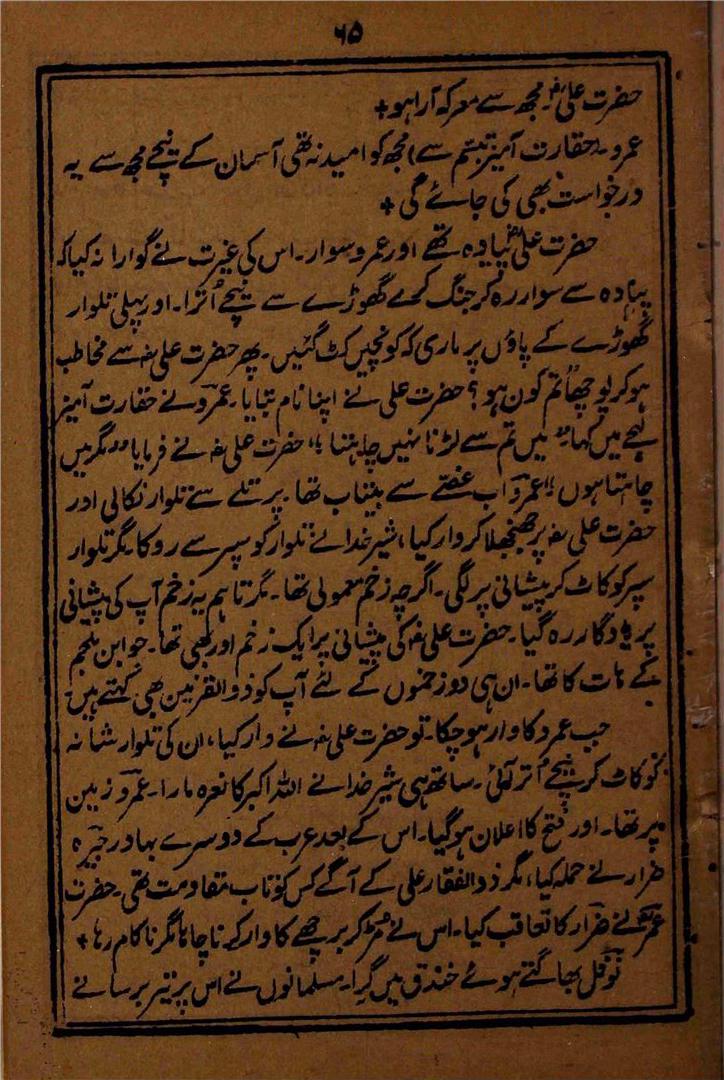 ۶۵
حضرت علیؓ۔ مجھ سے معرکہ آرا ہو +
عمرو۔ (حقارت آمیز تبسم سے) مجھ کو امید نہ تھی آسمان کے نیچے مجھ سے یہ
درخواست بھی کی جائے گی +
حضرت علیؓ پیادہ تھے اور عمرو سوار۔ اس کی غیرت نے گوارا نہ کیا کہ
پیادہ سے سوار رہ کر جنگ کرے گھوڑے سے نیچے اُترا۔ اور پہلی تلوار
گھوڑے کے پاؤں پر ماری کہ کونچیں کٹ گئیں۔ پھر حضرت علیؓ سے مخاطب
ہو کر پوچھا تم کون ہو؟ حضرت علی نے اپنا نام بتایا۔ عمرو نے حقارت آمیز
لہجے میں کہا۔ ”میں تم سے لڑنا نہیں چاہتا“! حضرت علیؓ نے فرمایا ”مگر میں
چاہتا ہوں“! عمرو اب غصے سے بیتاب تھا۔ پرتلے سے تلوار نکالی اور
حضرت علیؓ پر جھنجھلا کر وار کیا، شیر خدا نے تلوار کو سپر سے روکا۔ مگر تلوار
سپر کو کاٹ کر پیشانی پر لگی۔ اگرچہ زخم معمولی تھا۔ مگر تاہم یہ زخم آپ کی پیشانی
پر یادگار رہ گیا۔ حضرت علیؓ کی پیشانی پر ایک زخم اور بھی تھا۔ جو ابن ملجم
کے ہات کا تھا۔ ان ہی دو زخموں کے لئے آپ کو ذوالقرنین بھی کہتے ہیں۔
جب عمرو کا وار ہو چکا۔ تو حضرت علیؓ نے وار کیا، ان کی تلوار شانہ
کو کاٹ کر نیچے اُتر آئی۔ ساتھ ہی شیر خدا نے اللہ اکبر کا نعرہ مارا۔ عمرو زمین
پر تھا۔ اور فتح کا اعلان ہو گیا۔ اس کے بعد عرب کے دوسرے بہادر جبیرہ
ضرار نے حملہ کیا، مگر ذوالفقار علی کے آگے کس کو تاب مقاومت تھی۔ حضرت
عمرؓ نے ضرار کا تعاقب کیا۔ اس نے مڑ کر برچھے کا وار کرنا چاہا مگر ناکام رہا +
نوفل بھاگتے ہوئے خندق میں گرا۔ مسلمانوں نے اس پر تیر برسانے